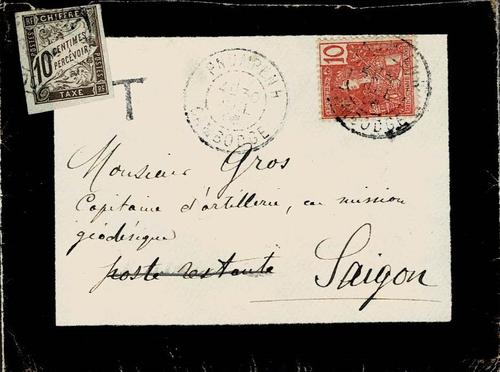 CHIFFRE
POSTES
RF
10 CENTIMES
À PERCEVOIR
TAXE
T
PNOMPENH
CAMBODGE
10
CAMBODGE
Monsieur Gros
Capitaine d'artillerie, en mission
géodésique
poste restante
Saigon